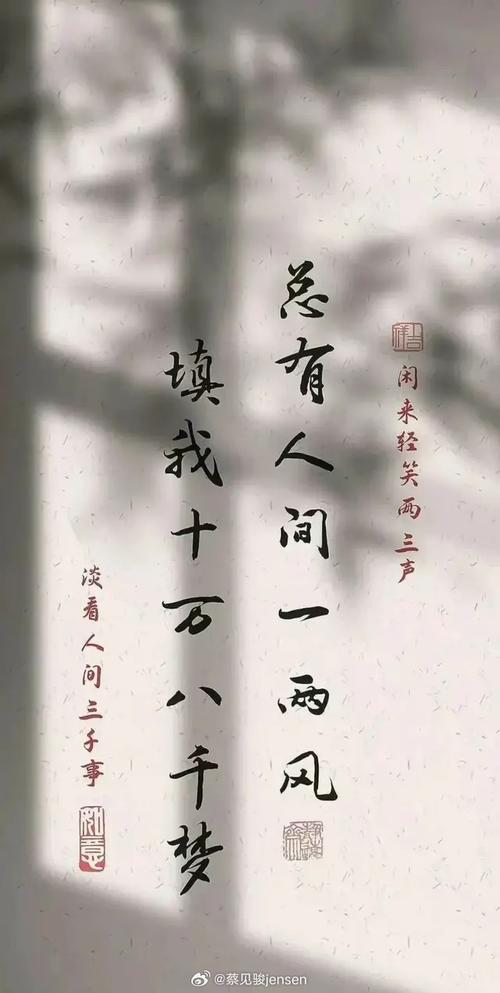 闲来轻笑两三声
总有人间一两风
填我十万八千梦
淡看人间三千事
如意
@蔡见骏jensen